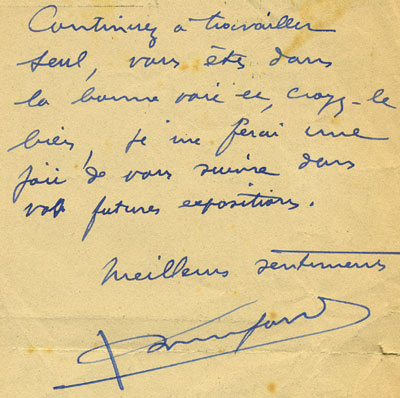 Continuez à travailler
seul, vous êtes dans
la bonne voie et, croyez-le
bien, je me ferai une
joie de vous suivre dans
vos futures expositions.
Meilleurs sentiments